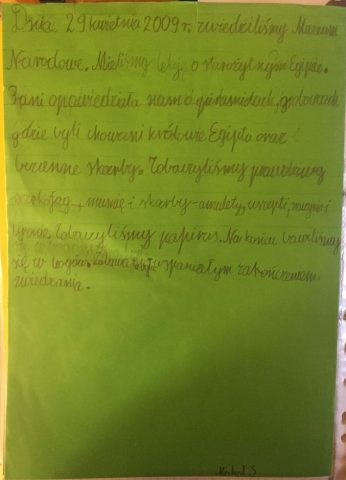 Dnia 29 kwietnia 2009 r. zwiedziliśmy Muzeum
Narodowe. Mieliśmy lekcję o starożytnym Egipcie.
Pani opowiedziała nam o piramidach, grobowcach
gdzie byli chowani królowie Egiptu oraz
bezcenne skarby. Zobaczyliśmy prawdziwy
sarkofag, mumię i skarby - amulety,
Zobaczyliśmy papirus. Na końcu bawiliśmy
się w bogów. Zabawa była wspaniałym zakończeniem
zwiedzania.
Michał S